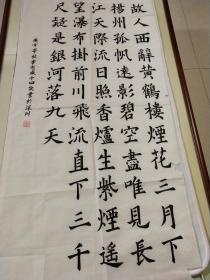 故人西辭黃鶴樓煙花三月下
揚州孤帆遠影碧空盡唯見長
江天際流日照香爐生紫煙遙
望瀑布掛前川飛流直下三千
尺疑是銀河落九天
書於深圳